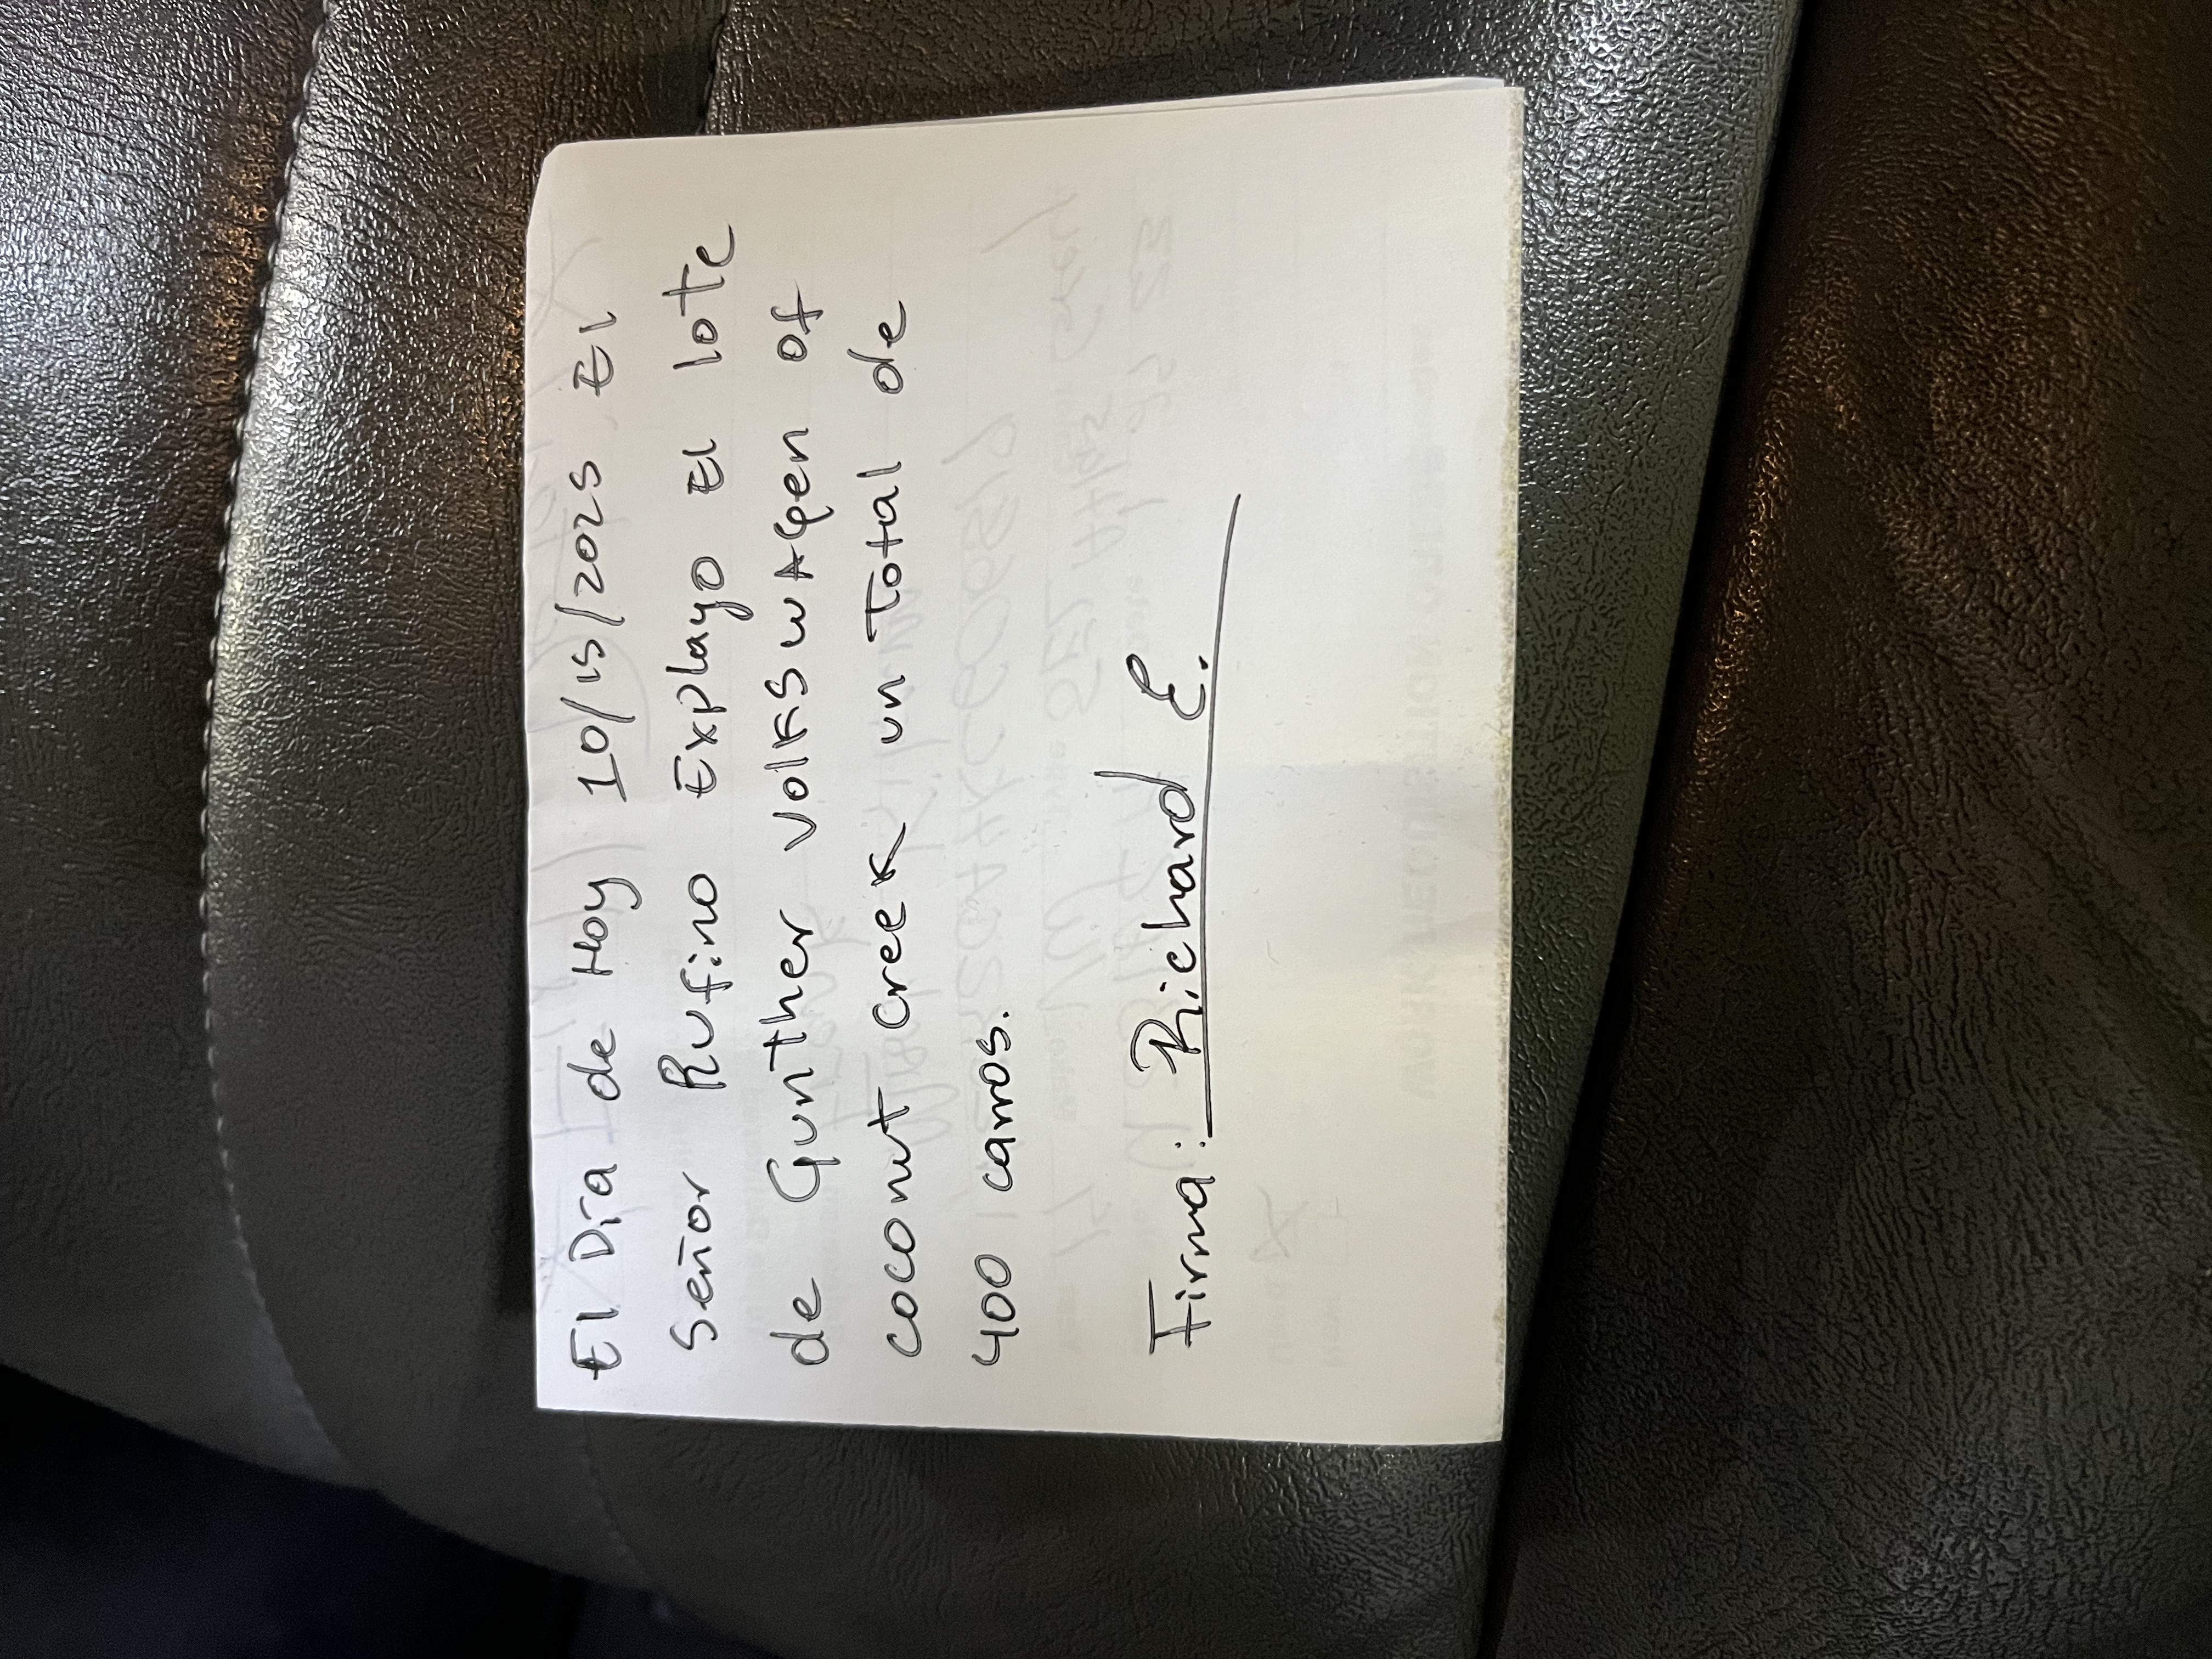 El Día de Hoy 10/15/2025 El
Señor Rufino Explayo El lote
de Gunther volkswAgen of
coconut creek un Total de
400 carros.
Firma: Richard E.